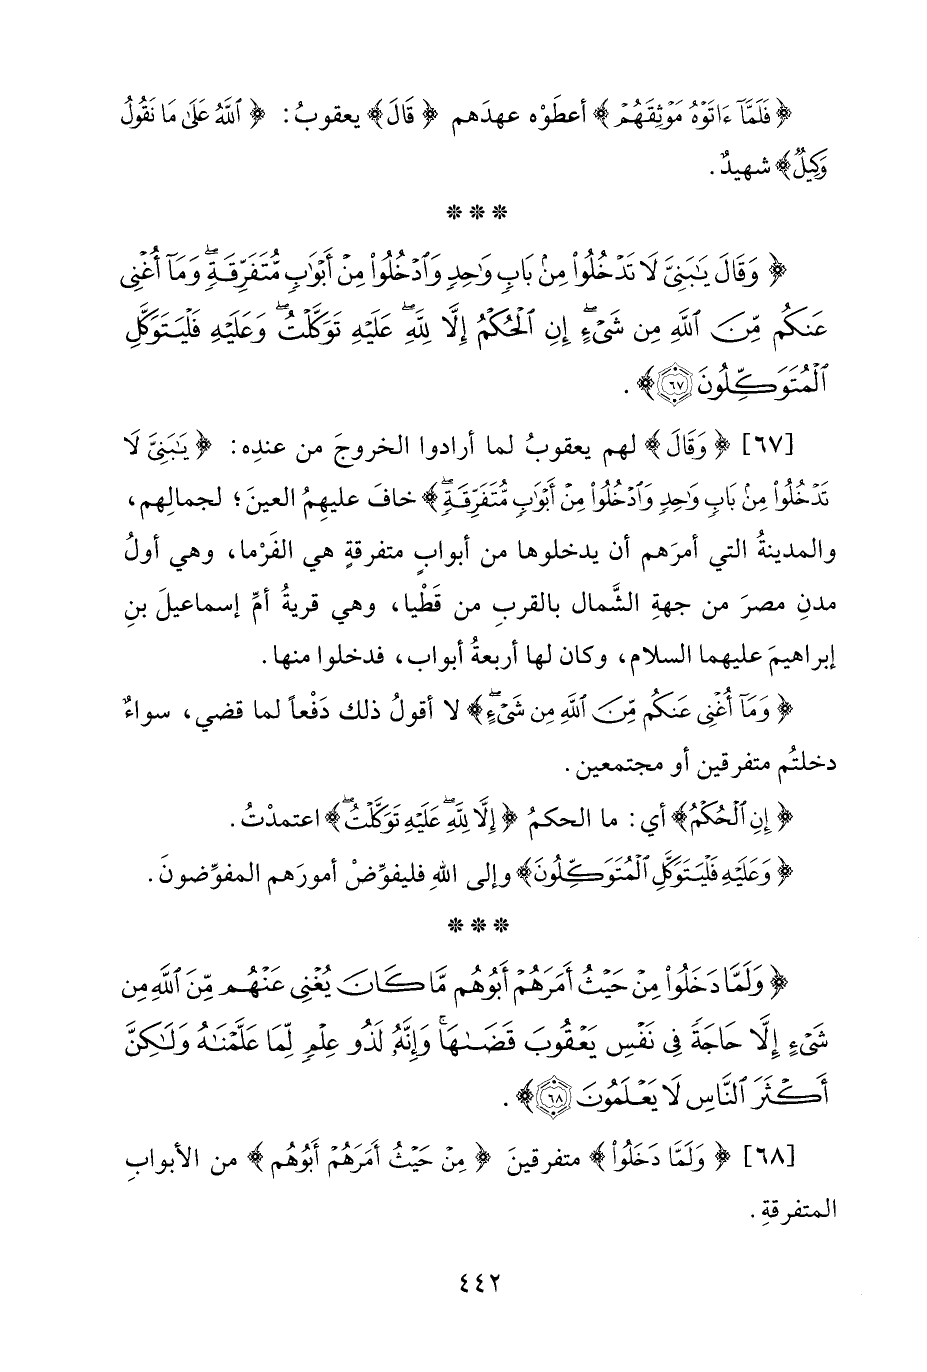 ﴿ فَلَمَّآ ءَاتَوْهُ مَوْثِقَهُمْ ﴾ أعطَوْه عهدَهم ﴿ قَالَ ﴾ يعقوبُ: ﴿ ٱللَّهُ عَلَىٰ مَا نَقُولُ
وَكِيلٌ ﴾ شهيدٌ.
* * *
﴿ وَقَالَ يَـٰبَنِىَّ لَا تَدْخُلُوا۟ مِنۢ بَابٍ وَٰحِدٍ وَٱدْخُلُوا۟ مِنْ أَبْوَٰبٍ مُّتَفَرِّقَةٍ ۖ وَمَآ أُغْنِى
عَنكُم مِّنَ ٱللَّهِ مِن شَىْءٍ ۖ إِنِ ٱلْحُكْمُ إِلَّا لِلَّهِ ۖ عَلَيْهِ تَوَكَّلْتُ ۖ وَعَلَيْهِ فَلْيَتَوَكَّلِ
ٱلْمُتَوَكِّلُونَ ٦٧ ﴾.
[٦٧] ﴿ وَقَالَ ﴾ لهم يعقوبُ لما أرادوا الخروجَ من عندِه: ﴿ يَـٰبَنِىَّ لَا
تَدْخُلُوا۟ مِنۢ بَابٍ وَٰحِدٍ وَٱدْخُلُوا۟ مِنْ أَبْوَٰبٍ مُّتَفَرِّقَةٍ ۖ ﴾ خافَ عليهِمُ العينَ؛ لجمالِهم،
والمدينةُ التي أمرَهم أن يدخلوها من أبوابٍ متفرقةٍ هي الفَرْما، وهي أولُ
مدنِ مصرَ من جهةِ الشَّمال بالقربِ من قَطْيا، وهي قريةُ أمِّ إسماعيلَ بنِ
إبراهيمَ عليهما السلام، وكان لها أربعةُ أبواب، فدخلوا منها.
﴿ وَمَآ أُغْنِى عَنكُم مِّنَ ٱللَّهِ مِن شَىْءٍ ۖ ﴾ لا أقولُ ذلك دَفْعاً لما قضي، سواءٌ
دخلتُم متفرقين أو مجتمعين.
﴿ إِنِ ٱلْحُكْمُ ﴾ أي: ما الحكمُ ﴿ إِلَّا لِلَّهِ ۖ عَلَيْهِ تَوَكَّلْتُ ۖ ﴾ اعتمدْتُ.
﴿ وَعَلَيْهِ فَلْيَتَوَكَّلِ ٱلْمُتَوَكِّلُونَ ﴾ وإلى اللهِ فليفوِّضْ أمورَهم المفوِّضونَ.
* * *
﴿ وَلَمَّا دَخَلُوا۟ مِنْ حَيْثُ أَمَرَهُمْ أَبُوهُم مَّا كَانَ يُغْنِى عَنْهُم مِّنَ ٱللَّهِ مِن
شَىْءٍ إِلَّا حَاجَةً فِى نَفْسِ يَعْقُوبَ قَضَىٰهَا ۚ وَإِنَّهُۥ لَذُو عِلْمٍ لِّمَا عَلَّمْنَـٰهُ وَلَـٰكِنَّ
أَكْثَرَ ٱلنَّاسِ لَا يَعْلَمُونَ ٦٨ ﴾.
[٦٨] ﴿ وَلَمَّا دَخَلُوا۟ ﴾ متفرقينَ ﴿ مِنْ حَيْثُ أَمَرَهُمْ أَبُوهُم ﴾ من الأبوابِ
المتفرقةِ.
٤٤٢